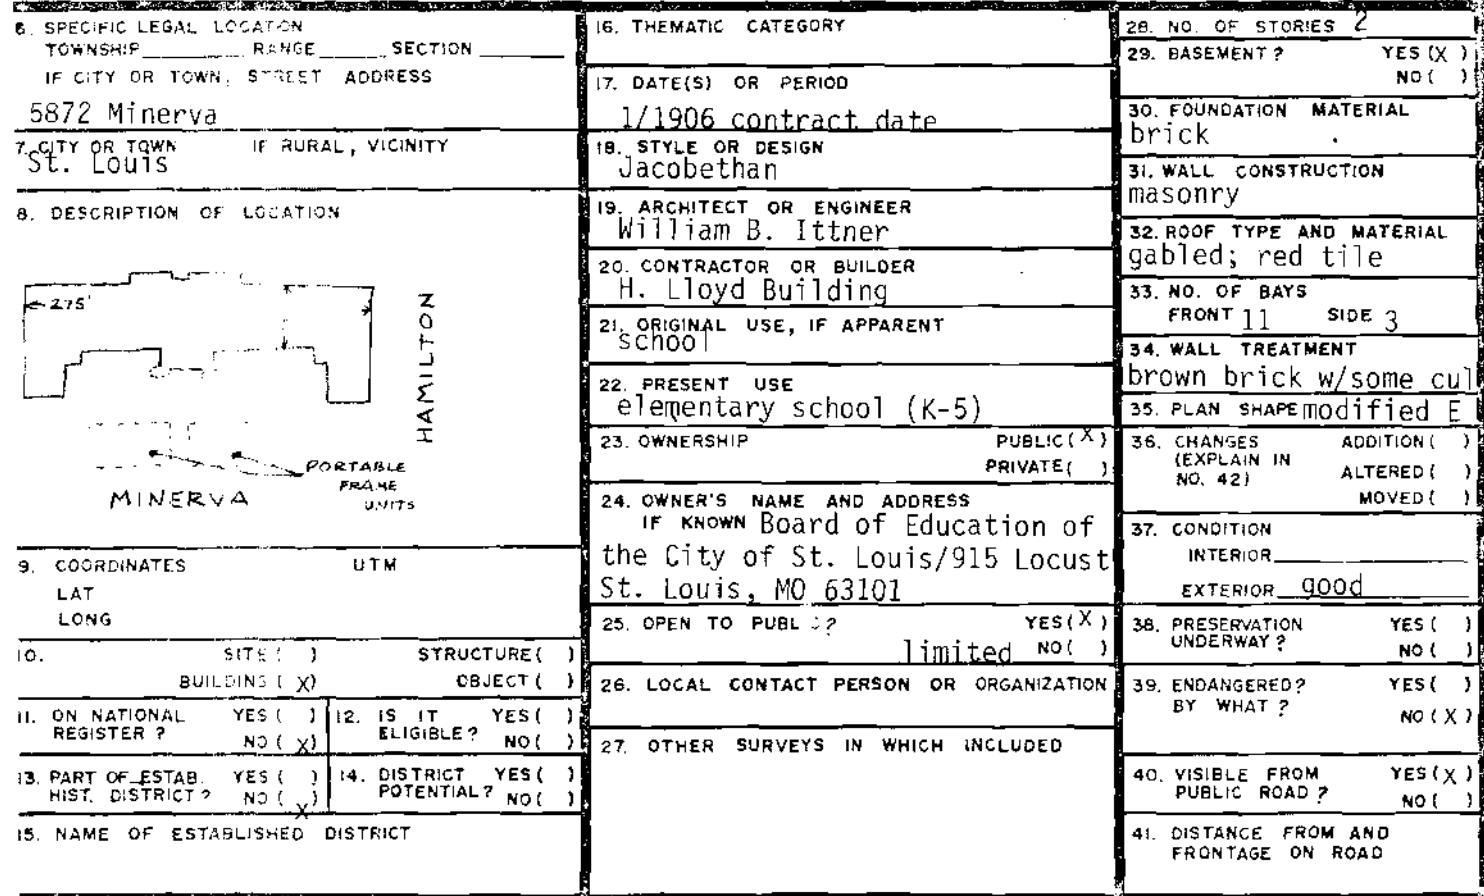 6. SPECIFIC LEGAL LOCATION
TOWNSHIP RANGE SECTION
IF CITY OR TOWN, STREET ADDRESS
5872 Minerva
7. CITY OR TOWN IF RURAL, VICINITY
St. Louis
8. DESCRIPTION OF LOCATION
275'
HAMILTON
PORTABLE
FRAME
UNITS
MINERVA
9. COORDINATES UTM
LAT
LONG
10. SITE ( ) STRUCTURE ( )
BUILDING ( X) OBJECT ( )
11. ON NATIONAL REGISTER ? YES ( ) NO ( X)
12. IS IT ELIGIBLE ? YES ( ) NO ( )
13. PART OF ESTAB. HIST. DISTRICT ? YES ( ) NO ( X)
14. DISTRICT POTENTIAL ? YES ( ) NO ( )
15. NAME OF ESTABLISHED DISTRICT
16. THEMATIC CATEGORY
17. DATE(S) OR PERIOD
1/1906 contract date
18. STYLE OR DESIGN
Jacobethan
19. ARCHITECT OR ENGINEER
William B. Ittner
20. CONTRACTOR OR BUILDER
H. Lloyd Building
21. ORIGINAL USE, IF APPARENT
school
22. PRESENT USE
elementary school (K-5)
23. OWNERSHIP PUBLIC (X)
PRIVATE ( )
24. OWNER'S NAME AND ADDRESS
IF KNOWN Board of Education of
the City of St. Louis/915 Locust
St. Louis, MO 63101
25. OPEN TO PUBL ? YES (X)
limited NO ( )
26. LOCAL CONTACT PERSON OR ORGANIZATION
27. OTHER SURVEYS IN WHICH INCLUDED
28. NO. OF STORIES 2
29. BASEMENT ? YES (X )
NO ( )
30. FOUNDATION MATERIAL
brick
31. WALL CONSTRUCTION
masonry
32. ROOF TYPE AND MATERIAL
gabled; red tile
33. NO. OF BAYS
FRONT 11 SIDE 3
34. WALL TREATMENT
brown brick w/some cul
35. PLAN SHAPE modified E
36. CHANGES ADDITION ( )
(EXPLAIN IN NO. 42) ALTERED ( )
MOVED ( )
37. CONDITION
INTERIOR
EXTERIOR good
38. PRESERVATION YES ( )
UNDERWAY ? NO ( )
39. ENDANGERED? YES ( )
BY WHAT ? NO (X )
40. VISIBLE FROM YES (X )
PUBLIC ROAD ? NO ( )
41. DISTANCE FROM AND
FRONTAGE ON ROAD